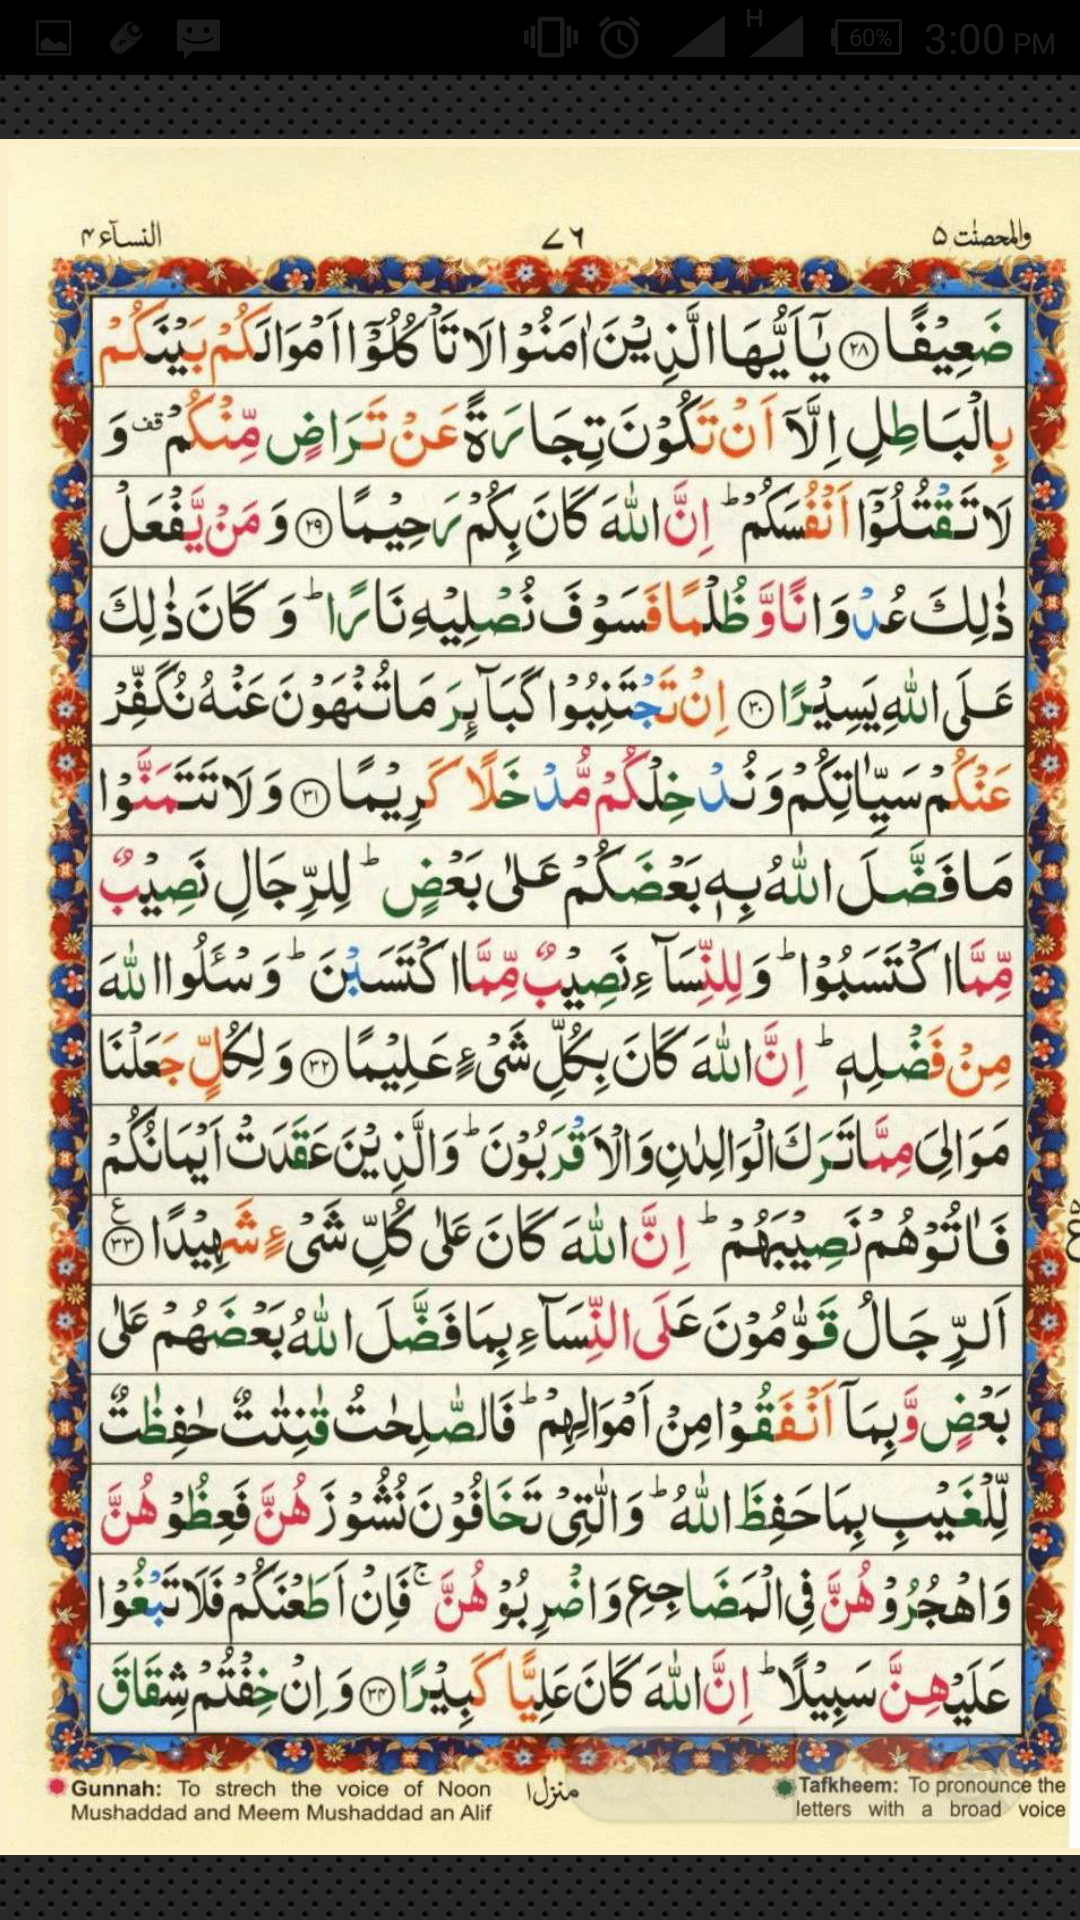 H 60% 3:00 PM
والمحصنٰت ۵ ۷۶ النسآء ۴
ضَعِيْفًا ﴿۲۸﴾ يٰٓاَيُّهَا الَّذِيْنَ اٰمَنُوْا لَا تَاْكُلُوْٓا اَمْوَالَكُمْ بَيْنَكُمْ
بِالْبَاطِلِ اِلَّآ اَنْ تَكُوْنَ تِجَارَةً عَنْ تَرَاضٍ مِّنْكُمْ ۟قف وَ
لَا تَقْتُلُوْٓا اَنْفُسَكُمْ ؕ اِنَّ اللّٰهَ كَانَ بِكُمْ رَحِيْمًا ﴿۲۹﴾ وَ مَنْ يَّفْعَلْ
ذٰلِكَ عُدْوَانًا وَّ ظُلْمًا فَسَوْفَ نُصْلِيْهِ نَارًا ؕ وَ كَانَ ذٰلِكَ
عَلَى اللّٰهِ يَسِيْرًا ﴿۳۰﴾ اِنْ تَجْتَنِبُوْا كَبَآئِرَ مَا تُنْهَوْنَ عَنْهُ نُكَفِّرْ
عَنْكُمْ سَيِّاٰتِكُمْ وَ نُدْخِلْكُمْ مُّدْخَلًا كَرِيْمًا ﴿۳۱﴾ وَ لَا تَتَمَنَّوْا
مَا فَضَّلَ اللّٰهُ بِهٖ بَعْضَكُمْ عَلٰى بَعْضٍ ؕ لِلرِّجَالِ نَصِيْبٌ
مِّمَّا اكْتَسَبُوْا ؕ وَ لِلنِّسَآءِ نَصِيْبٌ مِّمَّا اكْتَسَبْنَ ؕ وَ سْـَٔلُوا اللّٰهَ
مِنْ فَضْلِهٖ ؕ اِنَّ اللّٰهَ كَانَ بِكُلِّ شَىْءٍ عَلِيْمًا ﴿۳۲﴾ وَ لِكُلٍّ جَعَلْنَا
مَوَالِىَ مِمَّا تَرَكَ الْوَالِدٰنِ وَ الْاَقْرَبُوْنَ ؕ وَ الَّذِيْنَ عَقَدَتْ اَيْمَانُكُمْ
فَاٰتُوْهُمْ نَصِيْبَهُمْ ؕ اِنَّ اللّٰهَ كَانَ عَلٰى كُلِّ شَىْءٍ شَهِيْدًا ﴿۳۳﴾ ع
اَلرِّجَالُ قَوّٰمُوْنَ عَلَى النِّسَآءِ بِمَا فَضَّلَ اللّٰهُ بَعْضَهُمْ عَلٰى
بَعْضٍ وَّ بِمَآ اَنْفَقُوْا مِنْ اَمْوَالِهِمْ ؕ فَالصّٰلِحٰتُ قٰنِتٰتٌ حٰفِظٰتٌ
لِّلْغَيْبِ بِمَا حَفِظَ اللّٰهُ ؕ وَ الّٰتِىْ تَخَافُوْنَ نُشُوْزَهُنَّ فَعِظُوْهُنَّ
وَ اهْجُرُوْهُنَّ فِى الْمَضَاجِعِ وَ اضْرِبُوْهُنَّ ۚ فَاِنْ اَطَعْنَكُمْ فَلَا تَبْغُوْا
عَلَيْهِنَّ سَبِيْلًا ؕ اِنَّ اللّٰهَ كَانَ عَلِيًّا كَبِيْرًا ﴿۳۴﴾ وَ اِنْ خِفْتُمْ شِقَاقَ
Gunnah: To strech the voice of Noon
Mushaddad and Meem Mushaddad an Alif
منزل ۱
Tafkheem: To pronounce the
letters with a broad voice